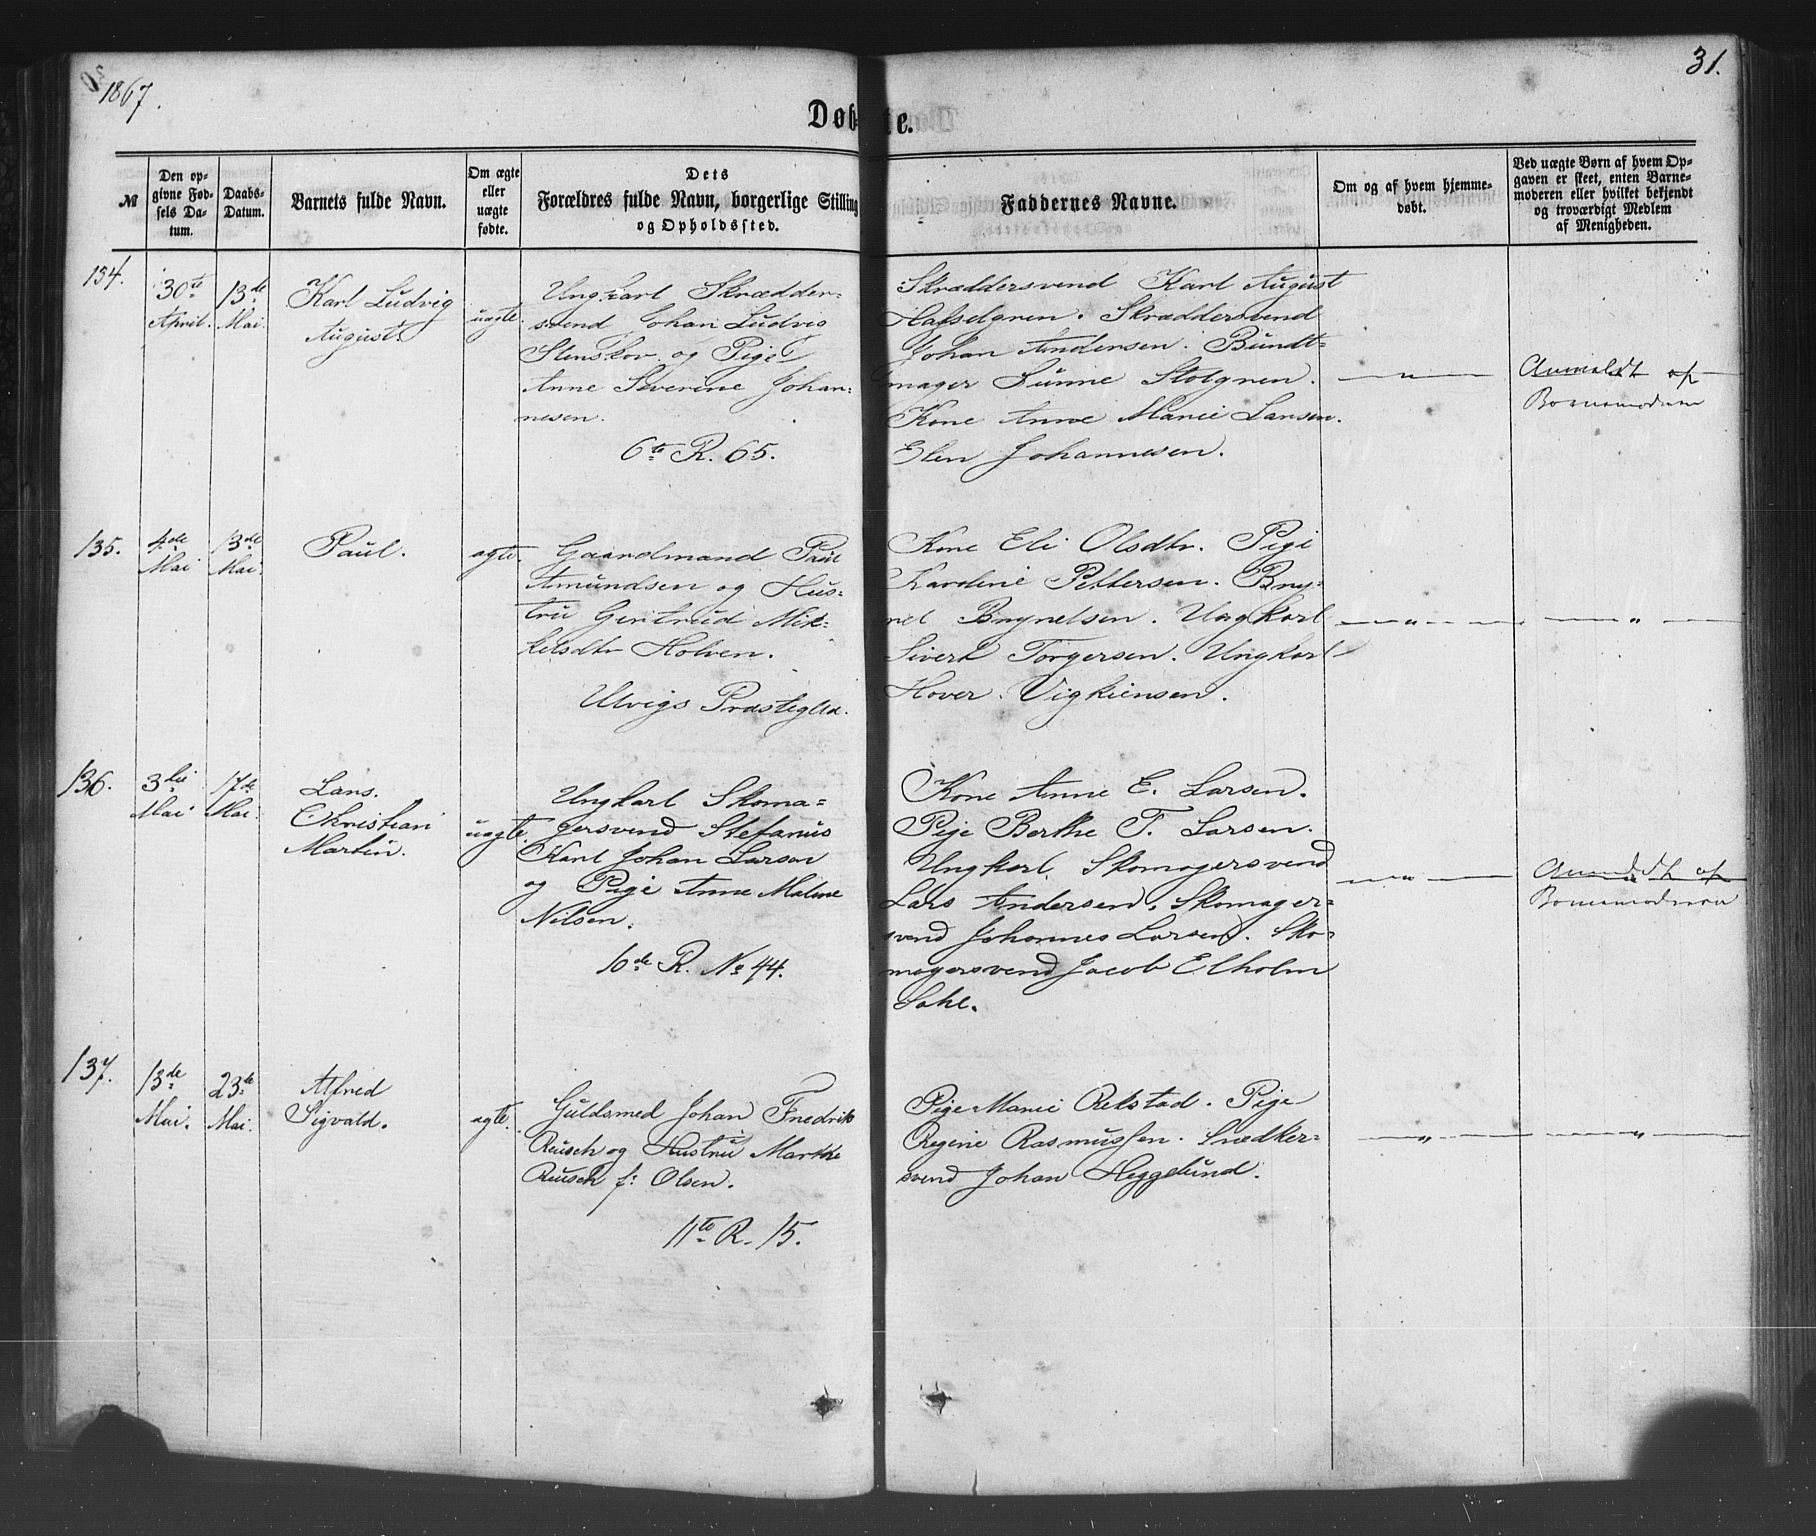 1867.
31.
Døbte.
№
Den op-
givne Fød-
sels Da-
tum.
Daabs-
Datum.
Barnets fulde Navn.
Om ægte
eller
uægte
fødte.
Dets
Forældres fulde Navn, borgerlige Stilling
og Opholdssted.
Faddernes Navne.
Om og af hvem hjemme-
døbt.
Ved uægte Børn af hvem Op-
gaven er skeet, enten Barne-
moderen eller hvilket bekjendt
og troværdigt Medlem
af Menigheden.
134.
30te
April.
13de
Mai.
Karl Ludvig
August.
uægte.
Ungkarl Skrædder-
svend Johan Ludvig
Stenskov og Pige
Anne Severine Johan-
nesen.
6te R. 65.
Skræddersvend Karl August
Hafselgren. Skræddersvend
Johan Andersen. Bundt-
mager Sunne Stolgren.
Kone Anne Marie Larsen.
Elen Johannesen.
— " —
Anmeldt af
Barnemoderen
135.
4de
Mai
13de
Mai.
Paul.
ægte.
Gaardmand Paul
Amundsen og Hus-
tru Gertrud Mik-
kelsdtr Holven.
Ulvigs Præstegld.
Kone Eli Olsdtr. Pige
Karoline Pettersen. Bry-
nel Brynelsen. Ungkarl
Sivert Torgersen. Ungkarl
Hover Vigkiensen.
— " —
— " —
136.
3die
Mai
17de
Mai.
Lars
Christian
Martin.
uægte.
Ungkarl Skoma-
gersvend Stefanus
Karl Johan Larsen
og Pige Anne Malene
Nilsen.
10de R. No 44.
Kone Anne E. Larsen.
Pige Berthe F. Larsen.
Ungkarl, Skomagersvend
Lars Andersen. Skomager-
svend Johannes Larsen. Sko-
magersvend Jacob Elholm
Sahl.
— " —
Anmeldt af
Barnemoderen
137.
13de
Mai.
23de
Mai.
Alfred
Sigvald.
ægte.
Guldsmed Johan Fredrik
Reusch og Hustru Marthe
Reusch f: Olsen.
11te R. 15.
Pige Marie Rekstad. Pige
Regine Rasmussen. Snedker-
svend Johan Heggelund.
— " —
— " —